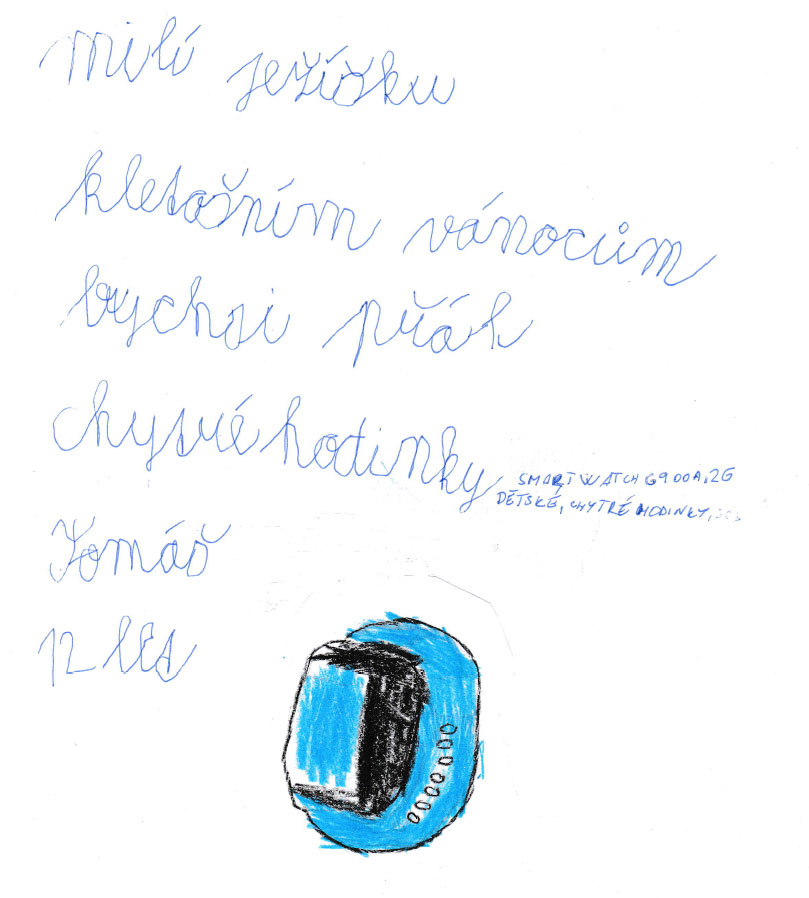 milí ježíšku
kletošním vánocům
bychsi přáh
chytré hodinky
SMARTWATCH G900A, 2G
DĚTSKÉ, CHYTRÉ HODINKY,
Tomáš
12 let